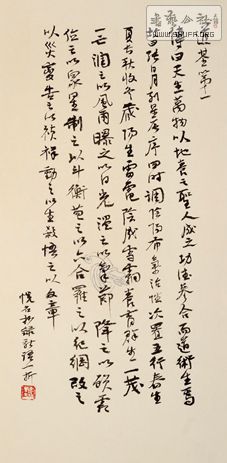 道基第一
傳曰天生萬物以地養之聖人成之功德參合而道術生焉
故曰張日月列星辰序四時調陰陽布氣治性次置五行春生
夏長秋收冬藏陽生雷電陰成雪霜養育群生一茂
一亡潤之以風雨曝之以日光溫之以節氣降之以殞霜
位之以眾星制之以斗衡苞之以六合羅之以紀綱改之
以災變告之以禎祥動之以生殺悟之以文章
抄錄新語一折